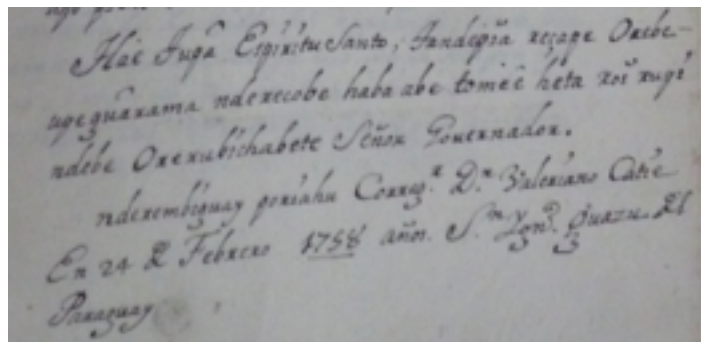 Hae Tupâ Espiritu Santo, Tandegĩa reçape Orebe-
upeguârama nderecobe haba abe tomeê heta roĩ rupi
ndebe Orerubichabete Señor Governador.
nderembiguay poriahu Correg.r D.n Valeriano Catie
En 24 2 Febrero 1758 años. S.n Ygn.o Guazu. El
Paraguay